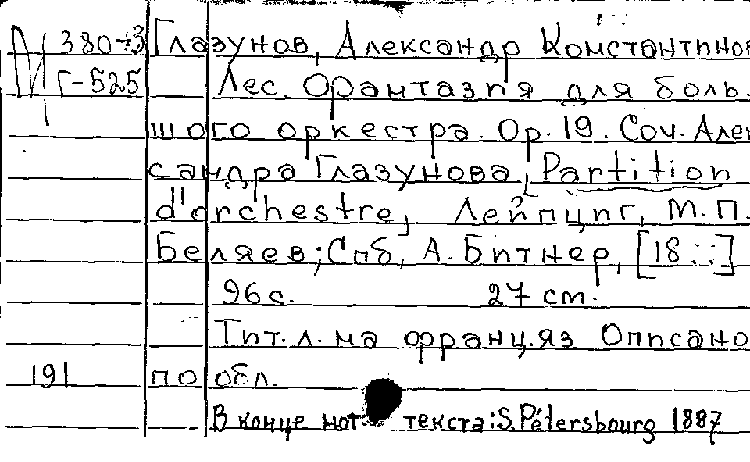 М 380-3 Глазунов, Александр Константинов
Г-525 Лес. Фантазия для боль
шого оркестра. Op. 19. Соч. Алек
сандра Глазунова, Partition
d'orchestre, Лейпциг, М.П.
Беляев; Спб, А. Битнер, [18 : :]
96 с. 27 cm.
Тит. л. на франц. яз Описано
191 по обл.
В конце нот. текста: S. Pétersbourg 1887